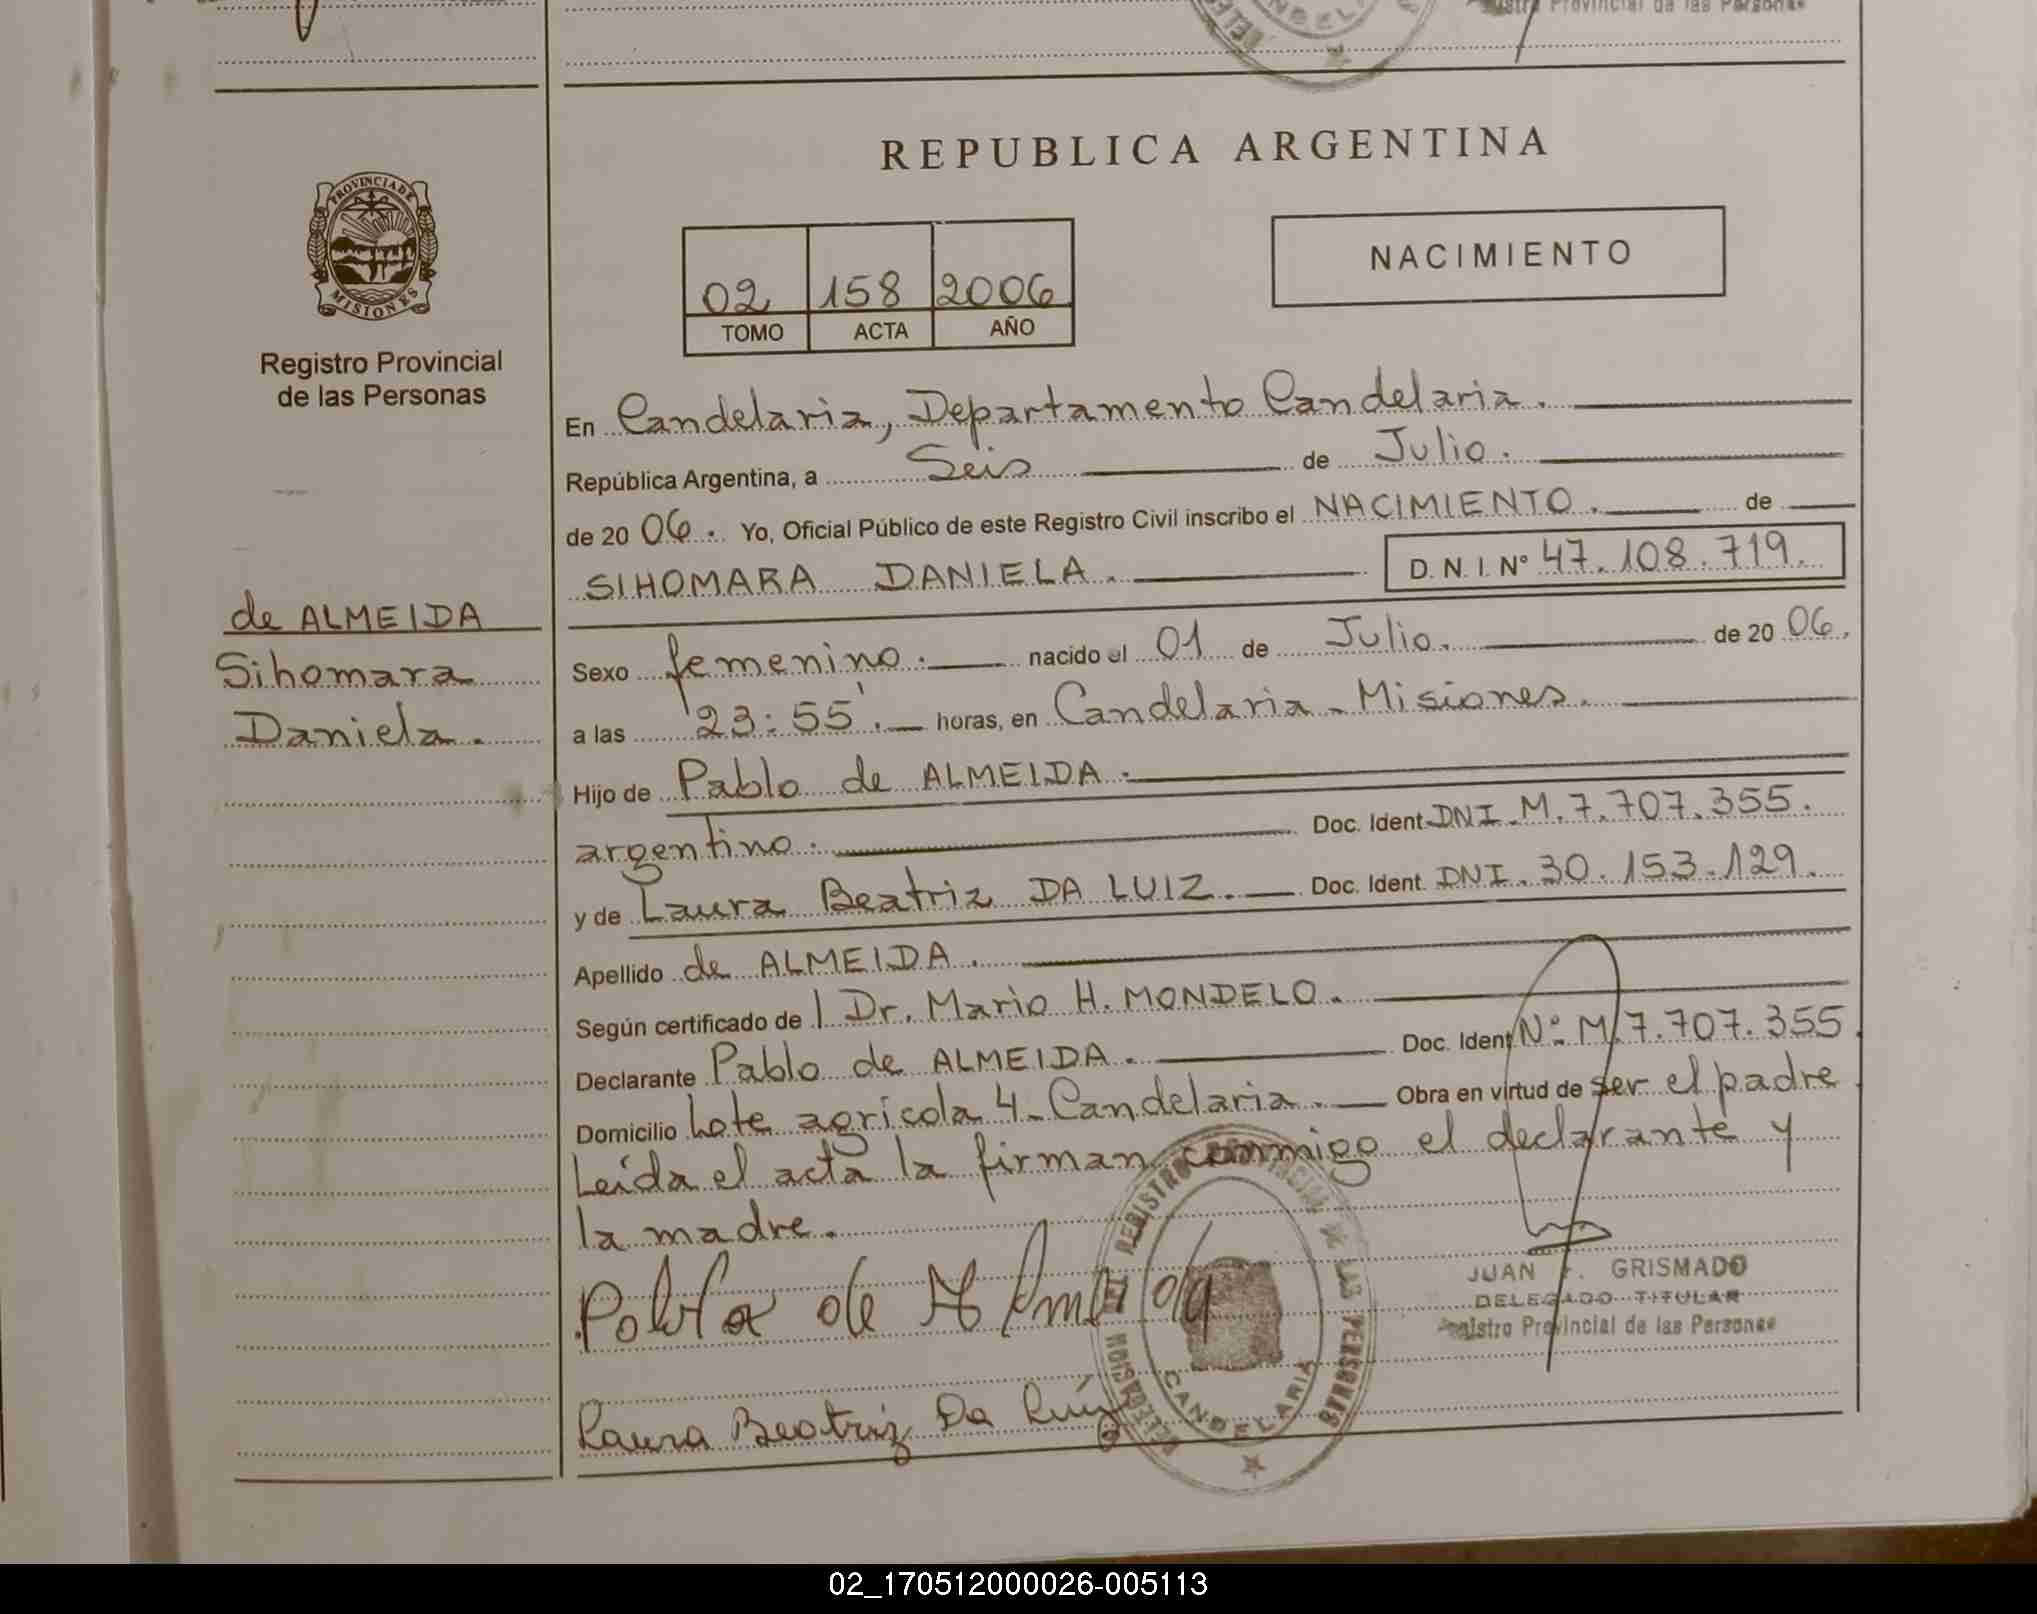 stro Provincial de las Personas
REPUBLICA ARGENTINA
PROVINCIA DE
MISIONES
02 158 2006
TOMO ACTA AÑO
NACIMIENTO
Registro Provincial
de las Personas
En Candelaria, Departamento Candelaria.
República Argentina, a Seis de Julio.
de 20 06. Yo, Oficial Público de este Registro Civil inscribo el NACIMIENTO. de
SIHOMARA DANIELA. D. N. I. N° 47.108.719.
de ALMEIDA
Sihomara
Daniela.
Sexo femenino. nacido el 01 de Julio. de 20 06.
a las 23:55'. horas, en Candelaria - Misiones.
Hijo de Pablo de ALMEIDA.
argentino. Doc. Ident. DNI. M. 7.707.355.
y de Laura Beatriz DA LUIZ. Doc. Ident. DNI. 30.153.129.
Apellido de ALMEIDA.
Según certificado de Dr. Mario H. MONDELO.
Declarante Pablo de ALMEIDA. Doc. Ident N° M 7.707.355.
Domicilio Lote agrícola 4- Candelaria. Obra en virtud de ser el padre
Leída el acta la firman conmigo el declarante y
la madre.
Pablo de Almeida
Laura Beatriz Da Luiz
REGISTRO PROVINCIAL DE LAS PERSONAS
CANDELARIA
JUAN GRISMADO
DELEGADO TITULAR
Registro Provincial de las Personas
02_170512000026-005113